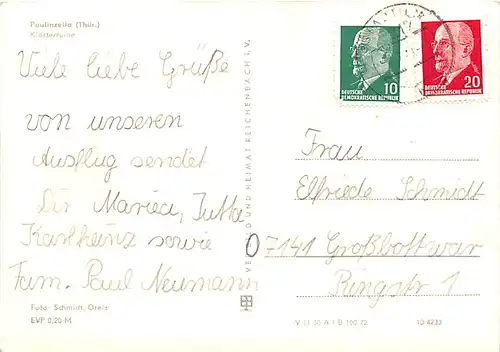 Paulinzella (Thür.)
Klosterruine
Viele liebe Grüße
von unseren
Ausflug sendet
Dir Marica, Jutta
Karlheinz sowie
Fam. Paul Neumann
Foto: Schmidt, Greiz
EVP 0,20 M
VERLAG BILD UND HEIMAT REICHENBACH I. V.
10
DEUTSCHE
DEMOKRATISCHE REPUBLIK
20
DEUTSCHE
DEMOKRATISCHE REPUBLIK
Frau
Elfriede Schmidt
07141 Großbottwar
Ringstr 1
V 11 50 A 1 B 100/72
10/4233